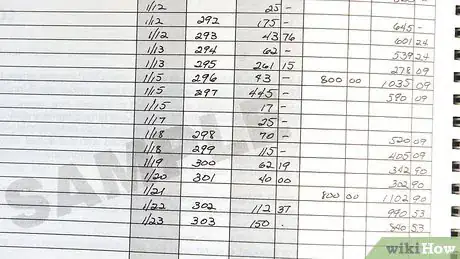 1/12 25 -
1/12 292 175 - 645 -
1/12 293 43 76 601 24
1/13 294 62 - 539 24
1/13 295 261 15 278 09
1/15 296 43 - 800 00 1035 09
1/15 297 445 - 590 09
1/15 17 -
1/17 25 -
1/18 298 70 - 520 09
1/18 299 115 - 405 09
1/19 300 62 19 342 90
1/20 301 40 00 302 90
1/21 800 00 1102 90
1/22 302 112 37 990 53
1/23 303 150 . 840 53
SAMPLE
wikiHow